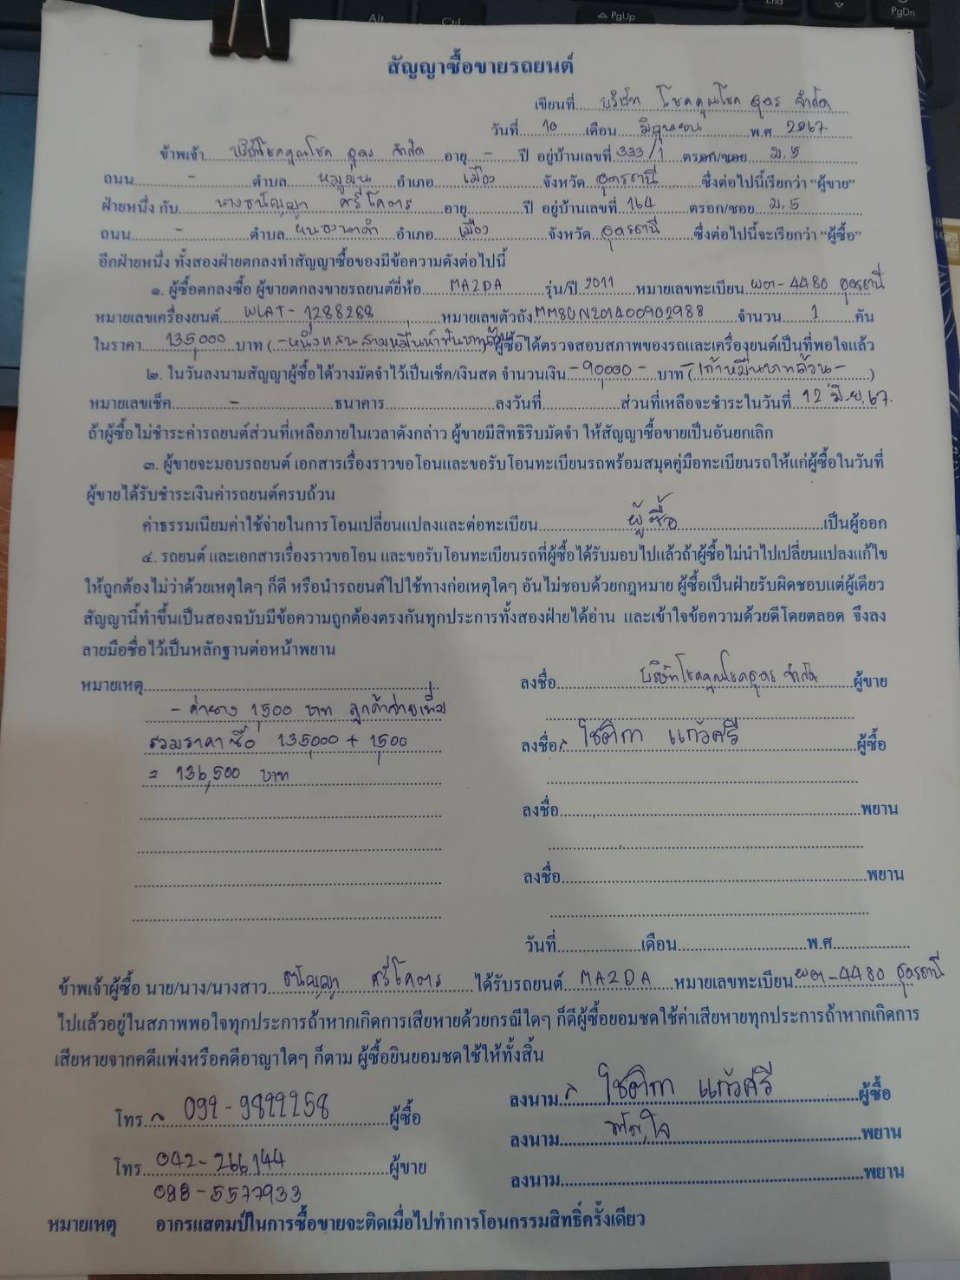 Alt
Ctrl
PgUp
End
PgDn
สัญญาซื้อขายรถยนต์
เขียนที่ บริษัท โชคคูณโชค อุดร จำกัด
วันที่ 10 เดือน มิถุนายน พ.ศ 2567
ข้าพเจ้า บริษัทโชคคูณโชค อุดร จำกัด อายุ - ปี อยู่บ้านเลขที่ 333/1 ตรอก/ซอย ม.5
ถนน - ตำบล หมูม่น อำเภอ เมือง จังหวัด อุดรธานี ซึ่งต่อไปนี้เรียกว่า “ผู้ขาย”
ฝ่ายหนึ่ง กับ นางธนัญญา ศรีโคตร อายุ ปี อยู่บ้านเลขที่ 164 ตรอก/ซอย ม.5
ถนน - ตำบล หนองนาคำ อำเภอ เมือง จังหวัด อุดรธานี ซึ่งต่อไปนี้จะเรียกว่า “ผู้ซื้อ”
อีกฝ่ายหนึ่ง ทั้งสองฝ่ายตกลงทำสัญญาซื้อของมีข้อความดังต่อไปนี้
๑. ผู้ซื้อตกลงซื้อ ผู้ขายตกลงขายรถยนต์ยี่ห้อ MAZDA รุ่น/ปี 2011 หมายเลขทะเบียน ผต-4480 อุดรธานี
หมายเลขเครื่องยนต์ WLAT-1288268 หมายเลขตัวถัง MM8UN201400902988 จำนวน 1 คัน
ในราคา 135,000 บาท (-หนึ่งแสนสามหมื่นห้าพันบาทถ้วน) ผู้ซื้อได้ตรวจสอบสภาพของรถและเครื่องยนต์เป็นที่พอใจแล้ว
๒. ในวันลงนามสัญญาผู้ซื้อได้วางมัดจำไว้เป็นเช็ค/เงินสด จำนวนเงิน -90000- บาท (-เก้าหมื่นบาทถ้วน-)
หมายเลขเช็ค - ธนาคาร ลงวันที่ ส่วนที่เหลือจะชำระในวันที่ 12 มิ.ย.67
ถ้าผู้ซื้อไม่ชำระค่ารถยนต์ส่วนที่เหลือภายในเวลาดังกล่าว ผู้ขายมีสิทธิริบมัดจำ ให้สัญญาซื้อขายเป็นอันยกเลิก
๓. ผู้ขายจะมอบรถยนต์ เอกสารเรื่องราวขอโอนและขอรับโอนทะเบียนรถพร้อมสมุดคู่มือทะเบียนรถให้แก่ผู้ซื้อในวันที่
ผู้ขายได้รับชำระเงินค่ารถยนต์ครบถ้วน
ค่าธรรมเนียมค่าใช้จ่ายในการโอนเปลี่ยนแปลงและต่อทะเบียน ผู้ซื้อ เป็นผู้ออก
๔. รถยนต์ และเอกสารเรื่องราวขอโอน และขอรับโอนทะเบียนรถที่ผู้ซื้อได้รับมอบไปแล้วถ้าผู้ซื้อไม่นำไปเปลี่ยนแปลงแก้ไข
ให้ถูกต้องไม่ว่าด้วยเหตุใดๆ ก็ดี หรือนำรถยนต์ไปใช้ทางก่อเหตุใดๆ อันไม่ชอบด้วยกฎหมาย ผู้ซื้อเป็นฝ่ายรับผิดชอบแต่ผู้เดียว
สัญญานี้ทำขึ้นเป็นสองฉบับมีข้อความถูกต้องตรงกันทุกประการทั้งสองฝ่ายได้อ่าน และเข้าใจข้อความด้วยดีโดยตลอด จึงลง
ลายมือชื่อไว้เป็นหลักฐานต่อหน้าพยาน
หมายเหตุ
- ค่ายาง 1,500 บาท ลูกค้าจ่ายเพิ่ม
รวมราคาซื้อ 135,000 + 1,500
= 136,500 บาท
ลงชื่อ บริษัทโชคคูณโชคอุดร จำกัด ผู้ขาย
ลงชื่อ โชติกา แก้วศรี ผู้ซื้อ
ลงชื่อ พยาน
ลงชื่อ พยาน
วันที่ เดือน พ.ศ.
ข้าพเจ้าผู้ซื้อ นาย/นาง/นางสาว ธนัญญา ศรีโคตร ได้รับรถยนต์ MAZDA หมายเลขทะเบียน ผต-4480 อุดรธานี
ไปแล้วอยู่ในสภาพพอใจทุกประการถ้าหากเกิดการเสียหายด้วยกรณีใดๆ ก็ดีผู้ซื้อยอมชดใช้ค่าเสียหายทุกประการถ้าหากเกิดการ
เสียหายจากคดีแพ่งหรือคดีอาญาใดๆ ก็ตาม ผู้ซื้อยินยอมชดใช้ให้ทั้งสิ้น
โทร. ผู้ซื้อ
ลงนาม โชติกา แก้วศรี ผู้ซื้อ
ลงนาม พยาน
โทร 042-266144 ผู้ขาย
088-5577933
ลงนาม พยาน
หมายเหตุ อากรแสตมป์ในการซื้อขายจะติดเมื่อไปทำการโอนกรรมสิทธิ์ครั้งเดียว